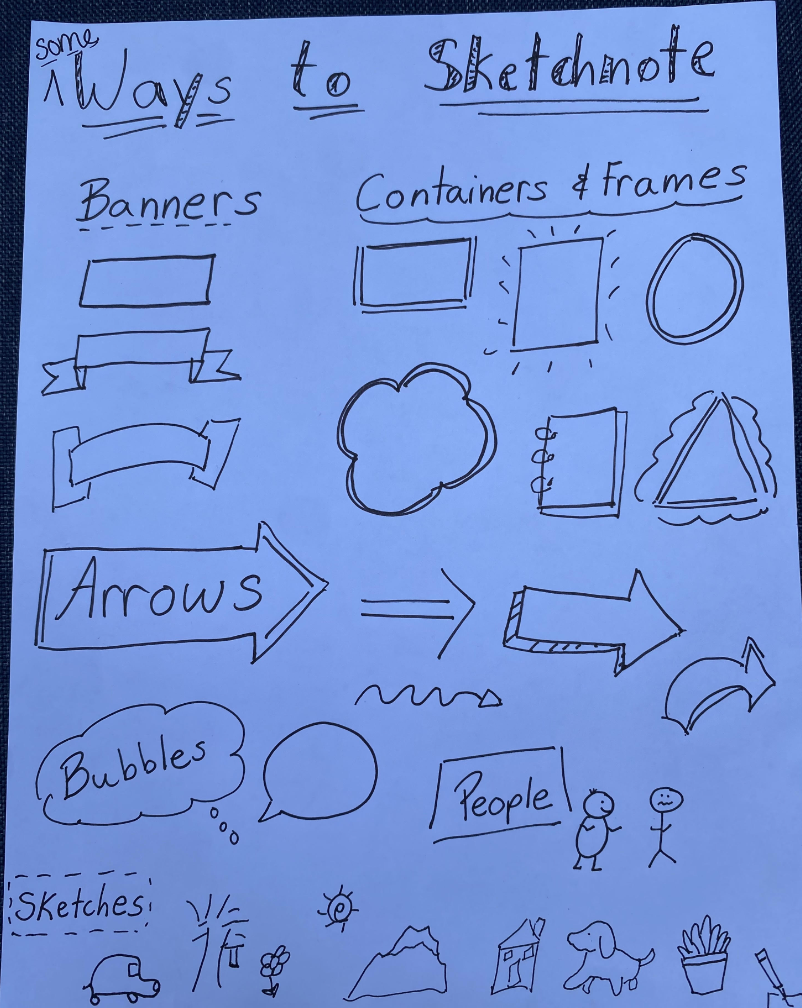 some
Ways to Sketchnote
Banners
Containers & Frames
Arrows
Bubbles
People
Sketches